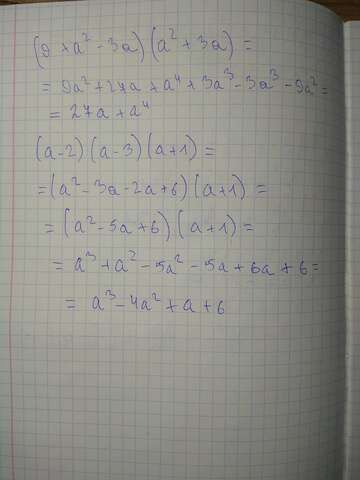 (9 + a² - 3a)(a² + 3a) =
= 9a² + 27a + a⁴ + 3a³ - 3a³ - 9a² =
= 27a + a⁴
(a-2)(a-3)(a+1) =
= (a² - 3a - 2a + 6)(a+1) =
= (a² - 5a + 6)(a+1) =
= a³ + a² - 5a² - 5a + 6a + 6 =
= a³ - 4a² + a + 6